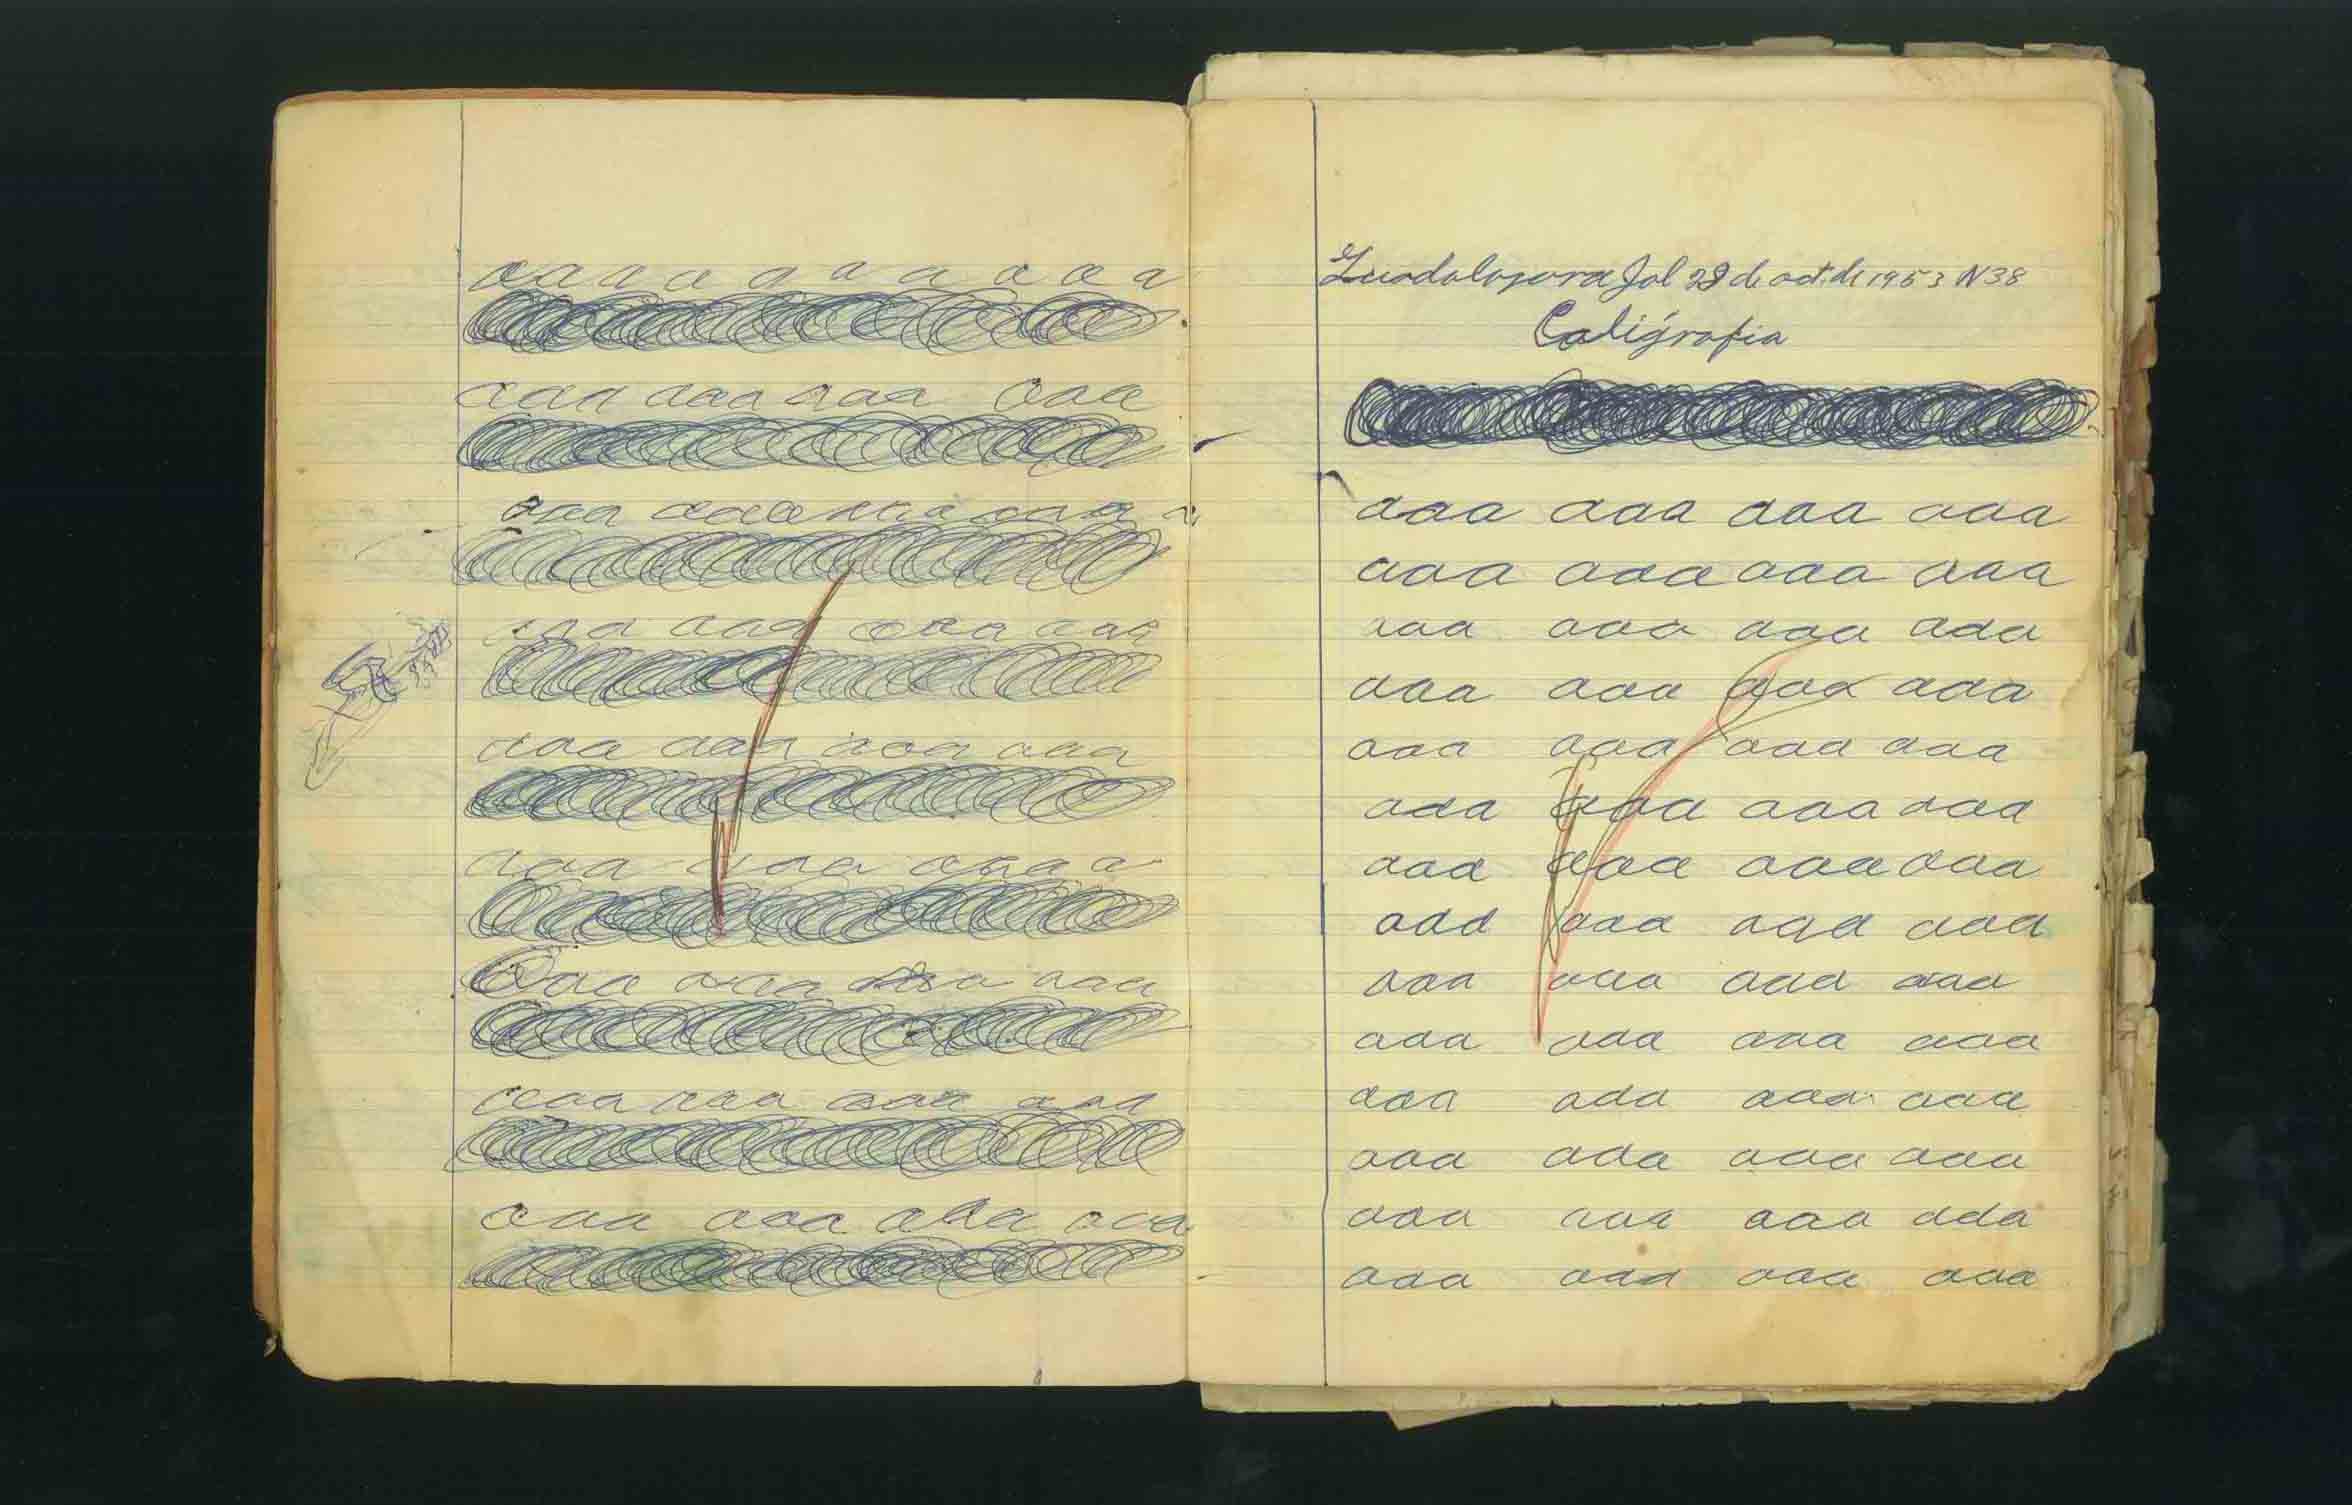 a a a a a a a a a a
aaa aaa aaa aaa
aaa aaaa aaa aaa a
aaa aaa aaa aaa
aaa aaa aaa aaa
aaa a aa aaa a
aaa aaa aaa aaa
aaa aaa aaa aaa
aaa aaa aaa aaa
Guadalajara Jal 28 de oct. de 1953 N 38
Caligrafia
aaa aaa aaa aaa
aaa aaa aaa aaa
aaa aaa aaa aaa
aaa aaa aaa aaa
aaa aaa aaa aaa
aaa aaa aaa aaa
aaa aaa aaa aaa
aaa aaa aaa aaa
aaa aaa aaa aaa
aaa aaa aaa aaa
aaa aaa aaa aaa
aaa aaa aaa aaa
aaa aaa aaa aaa
aaa aaa aaa aaa